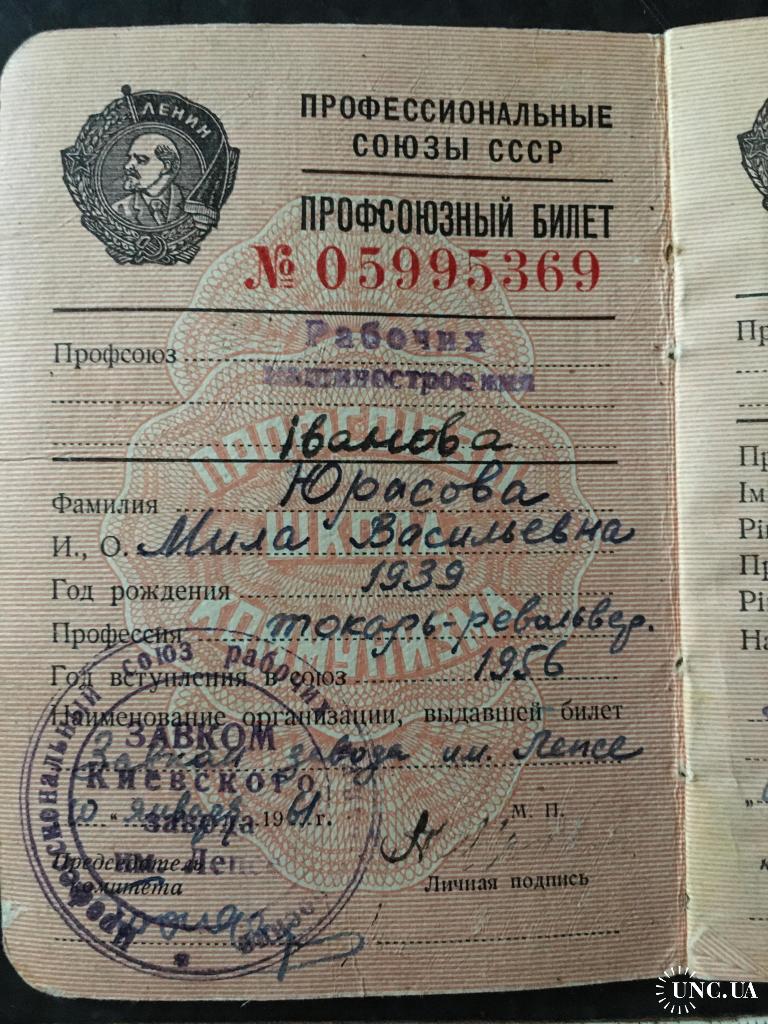 ЛЕНИН
ПРОФЕССИОНАЛЬНЫЕ
СОЮЗЫ СССР
ПРОФСОЮЗНЫЙ БИЛЕТ
№ 05995369
Профсоюз Рабочих
машиностроения
Іванова
Фамилия Юрасова
И., О. Мила Васильевна
Год рождения 1939
Профессия токарь-револьвер.
Год вступления в союз 1956
Наименование организации, выдавшей билет
Завком завода им. Лепсе
10 " января 1961 г.
М. П.
Председатель
комитета
Личная подпись
Профессиональный союз рабочих
ЗАВКОМ
Киевского
завода
им. Лепсе
ПРОФСОЮЗЫ
ШКОЛА
КОММУНИЗМА
Пр
Пр
Ім
Рі
Пр
Рі
На
UNC.UA